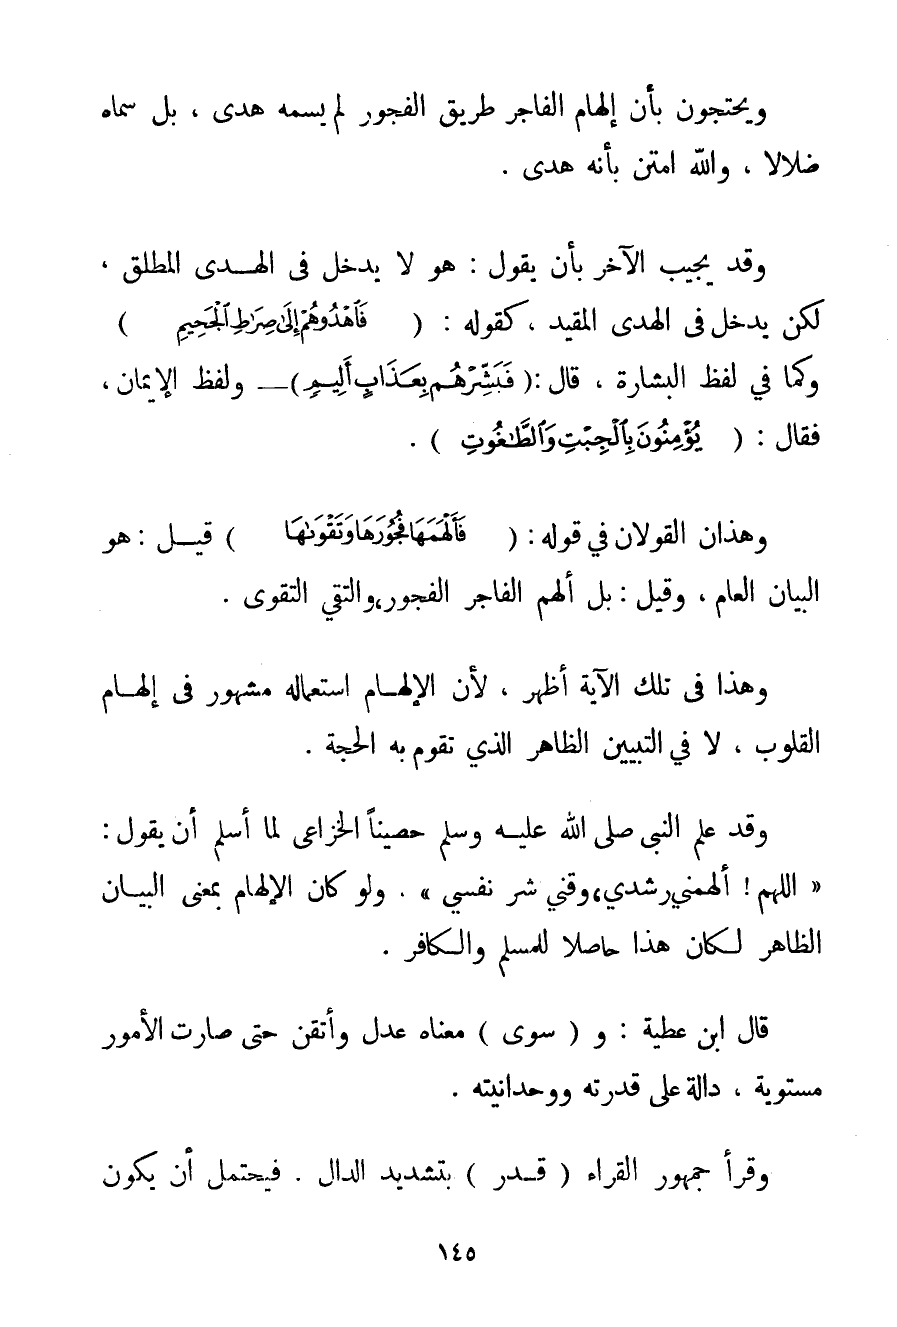 ويحتجون بأن إلهام الفاجر طريق الفجور لم يسمه هدى ، بل سماه
ضلالا ، والله امتن بأنه هدى .
وقد يجيب الآخر بأن يقول : هو لا يدخل في الهدى المطلق ،
لكن يدخل في الهدى المقيد ، كقوله : ( فَٱهْدُوهُمْ إِلَىٰ صِرَٰطِ ٱلْجَحِيمِ )
وكما في لفظ البشارة ، قال : ( فَبَشِّرْهُم بِعَذَابٍ أَلِيمٍ ) — ولفظ الإيمان ،
فقال : ( يُؤْمِنُونَ بِٱلْجِبْتِ وَٱلطَّٰغُوتِ ) .
وهذان القولان في قوله : ( فَأَلْهَمَهَا فُجُورَهَا وَتَقْوَىٰهَا ) قيل : هو
البيان العام ، وقيل : بل ألهم الفاجر الفجور ، والتقي التقوى .
وهذا في تلك الآية أظهر ، لأن الإلهام استعماله مشهور في إلهام
القلوب ، لا في التبيين الظاهر الذي تقوم به الحجة .
وقد علم النبي صلى الله عليه وسلم حصيناً الخزاعى لما أسلم أن يقول :
« اللهم ! ألهمني رشدي ، وقني شر نفسي » . ولو كان الإلهام بمعنى البيان
الظاهر لكان هذا حاصلا للمسلم والكافر .
قال ابن عطية : و ( سوى ) معناه عدل وأتقن حتى صارت الأمور
مستوية ، دالة على قدرته ووحدانيته .
وقرأ جمهور القراء ( قدر ) بتشديد الدال . فيحتمل أن يكون
١٤٥